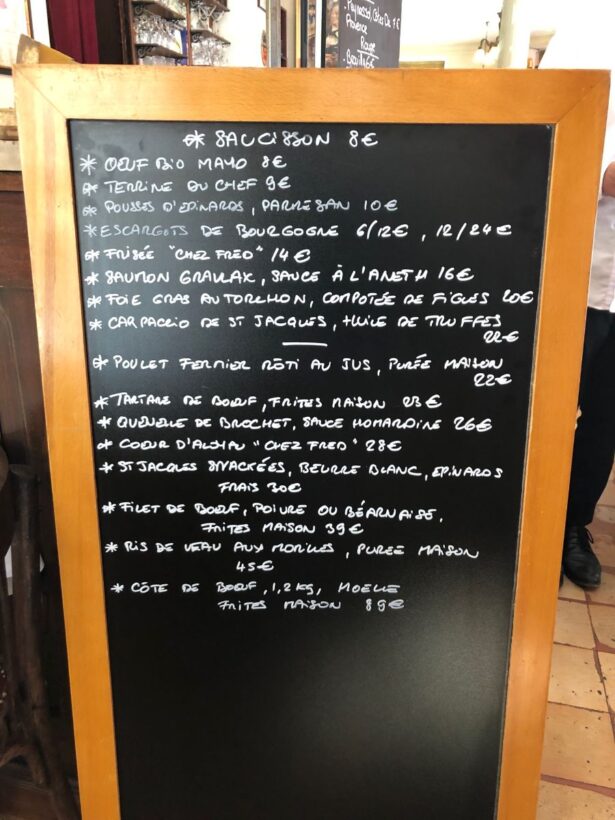 Provence
Rouge
* SAUCISSON 8€
* OEUF BIO MAYO 8€
* TERRINE DU CHEF 9€
* POUSSES D'EPINARDS, PARMESAN 10€
* ESCARGOTS DE BOURGOGNE 6/12€, 12/24€
* FRISÉE "CHEZ FRED" 14€
* SAUMON GRAVLAX, SAUCE À L'ANETH 16€
* FOIE GRAS AU TORCHON, COMPOTÉE DE FIGUES 20€
* CARPACCIO DE ST JACQUES, HUILE DE TRUFFES
22€
* POULET FERMIER RÔTI AU JUS, PURÉE MAISON
22€
* TARTARE DE BOEUF, FRITES MAISON 23€
* QUENELLE DE BROCHET, SAUCE HOMARDINE 26€
* COEUR D'ALOYAU "CHEZ FRED" 28€
* ST JACQUES SNACKÉES, BEURRE BLANC, EPINARDS
FRAIS 30€
* FILET DE BOEUF, POIVRE OU BÉARNAISE,
FRITES MAISON 39€
* RIS DE VEAU AUX MORILLES, PUREE MAISON
45€
* CÔTE DE BOEUF, 1,2KG, MOELLE
FRITES MAISON 89€